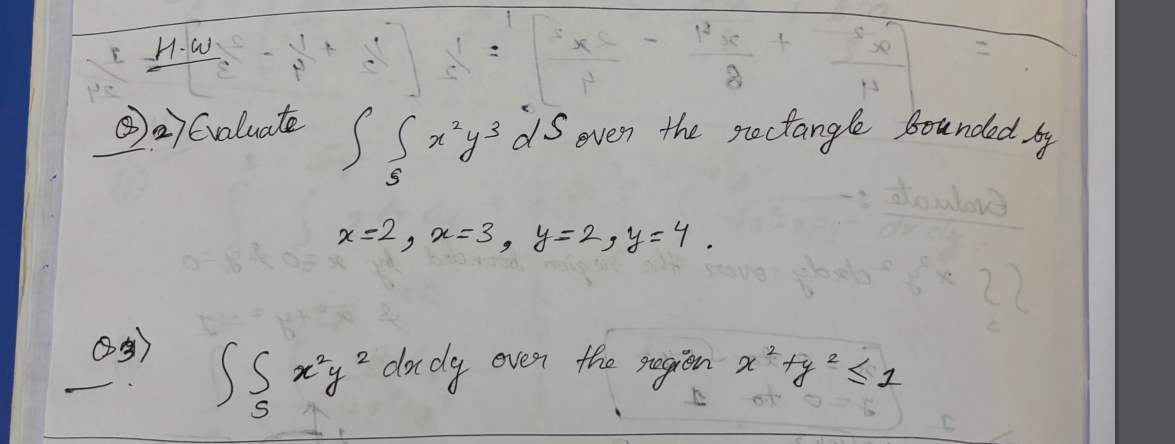 H.W
Q) 2) Evaluate ∫∫_S x²y³ dS over the rectangle bounded by
x=2, x=3, y=2, y=4.
Q3) ∫∫_S x²y² dxdy over the region x²+y² ≤ 1